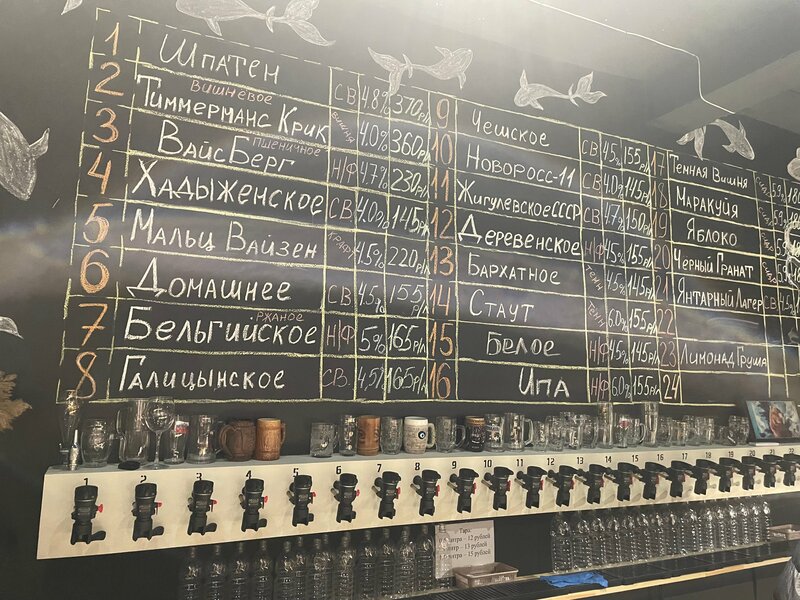 1 Шпатен СВ 4.8% 370р/л
2 Вишневое Тиммерманс Крик вишня 4.0% 360р/л
3 Пшеничное ВайсБерг Н/Ф 4.7% 230р/л
4 Хадыженское СВ 4.0% 145р/л
5 Мальц Вайзен 4.5% 220р/л
6 Домашнее СВ 4.5% 155р/л
7 Ржаное Бельгийское Н/Ф 5% 165р/л
8 Галицынское СВ. 4,5% 165р/л
9 Чешское СВ 4.5% 155р/л
10 Новоросс-11 СВ 4.0% 145р/л
11 Жигулевское СССР СВ 4.7% 150р/л
12 Деревенское Н/Ф 4.5% 155р/л
13 Бархатное ТЕМН 4.5% 145р/л
14 Стаут ТЕМН 6.0% 155р/л
15 Белое Н/Ф 4.5% 145р/л
16 Ипа Н/Ф 6.0% 155р/л
17 Темная Вишня
18 Маракуйя
19 Яблоко
20 Черный Гранат
21 Янтарный Лагер СВ
22
23 Лимонад Груша
24
1 2 3 4 5 6 7 8 9 10 11 12 13 14 15 16 17 18 19 20 21 22
Тара:
литра - 12 рублей
литр - 13 рублей
литра - 15 рублей